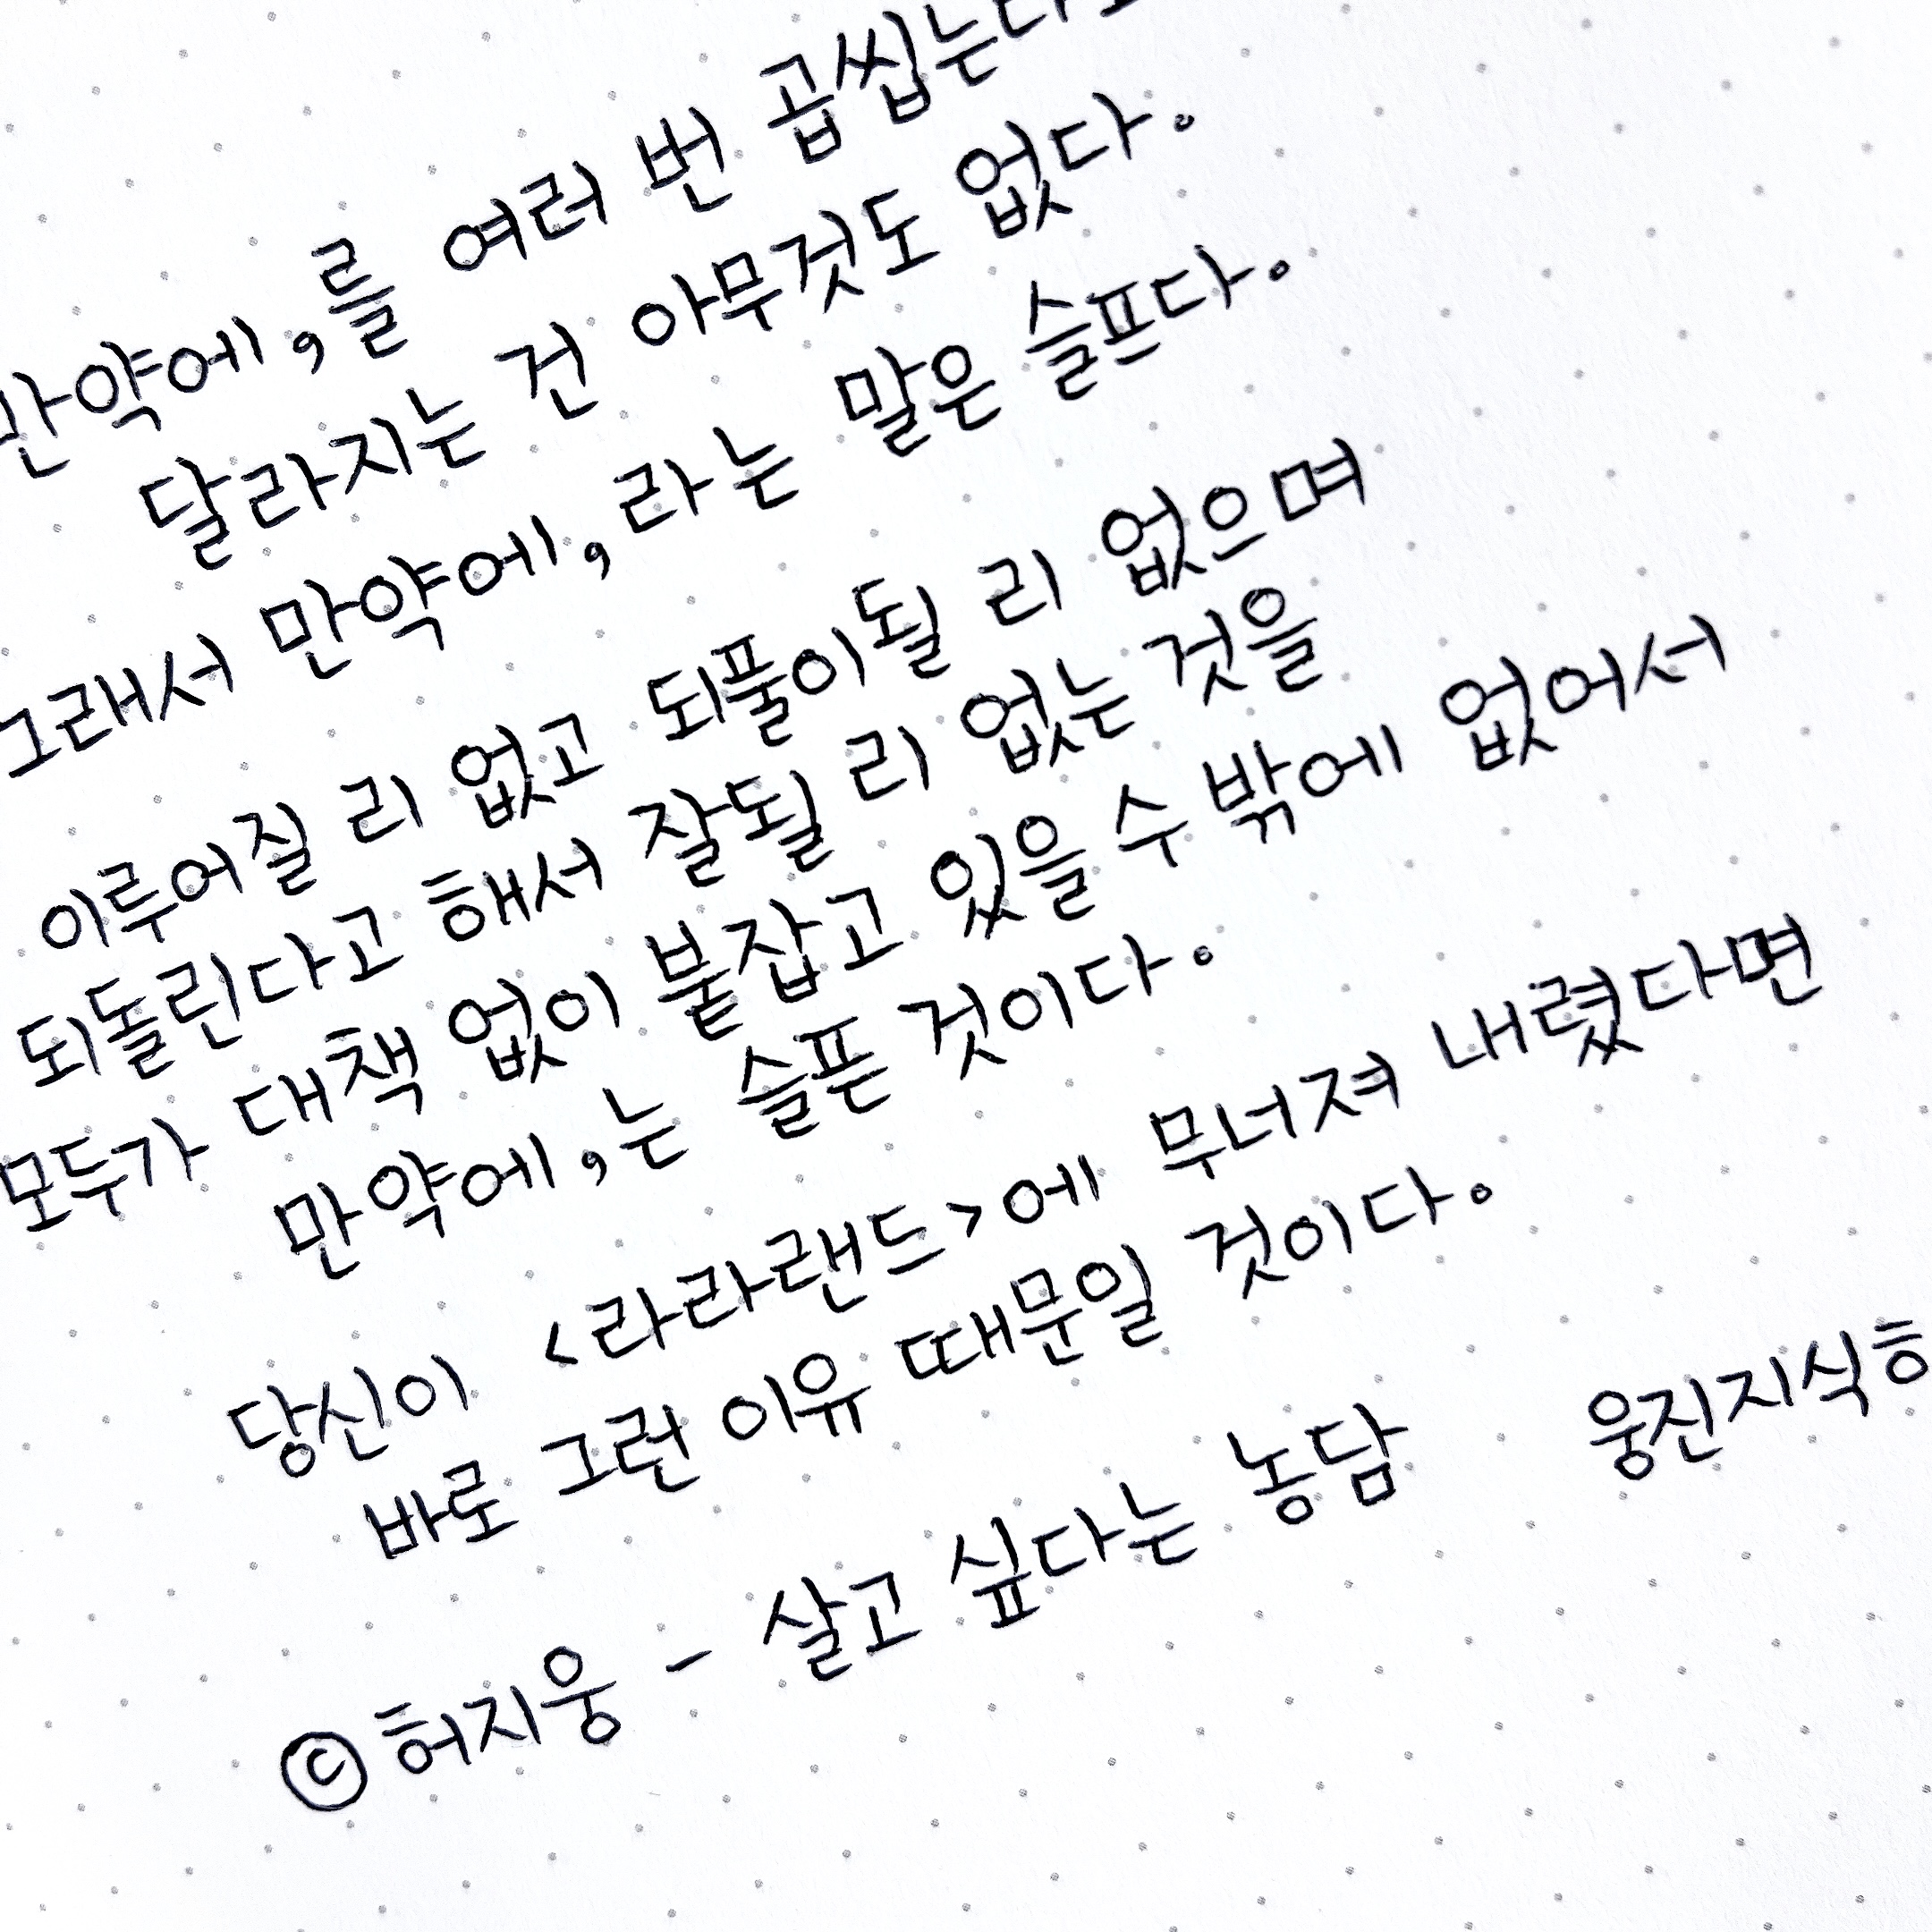 만약에,를 여러 번 곱씹는다고
달라지는 건 아무것도 없다.
그래서 만약에,라는 말은 슬프다.
이루어질 리 없고 되풀이될 리 없으며
되돌린다고 해서 잘될 리 없는 것을
모두가 대책 없이 붙잡고 있을 수 밖에 없어서
만약에,는 슬픈 것이다.
당신이 <라라랜드>에 무너져 내렸다면
바로 그런 이유 때문일 것이다.
©허지웅 - 살고 싶다는 농담 웅진지식하